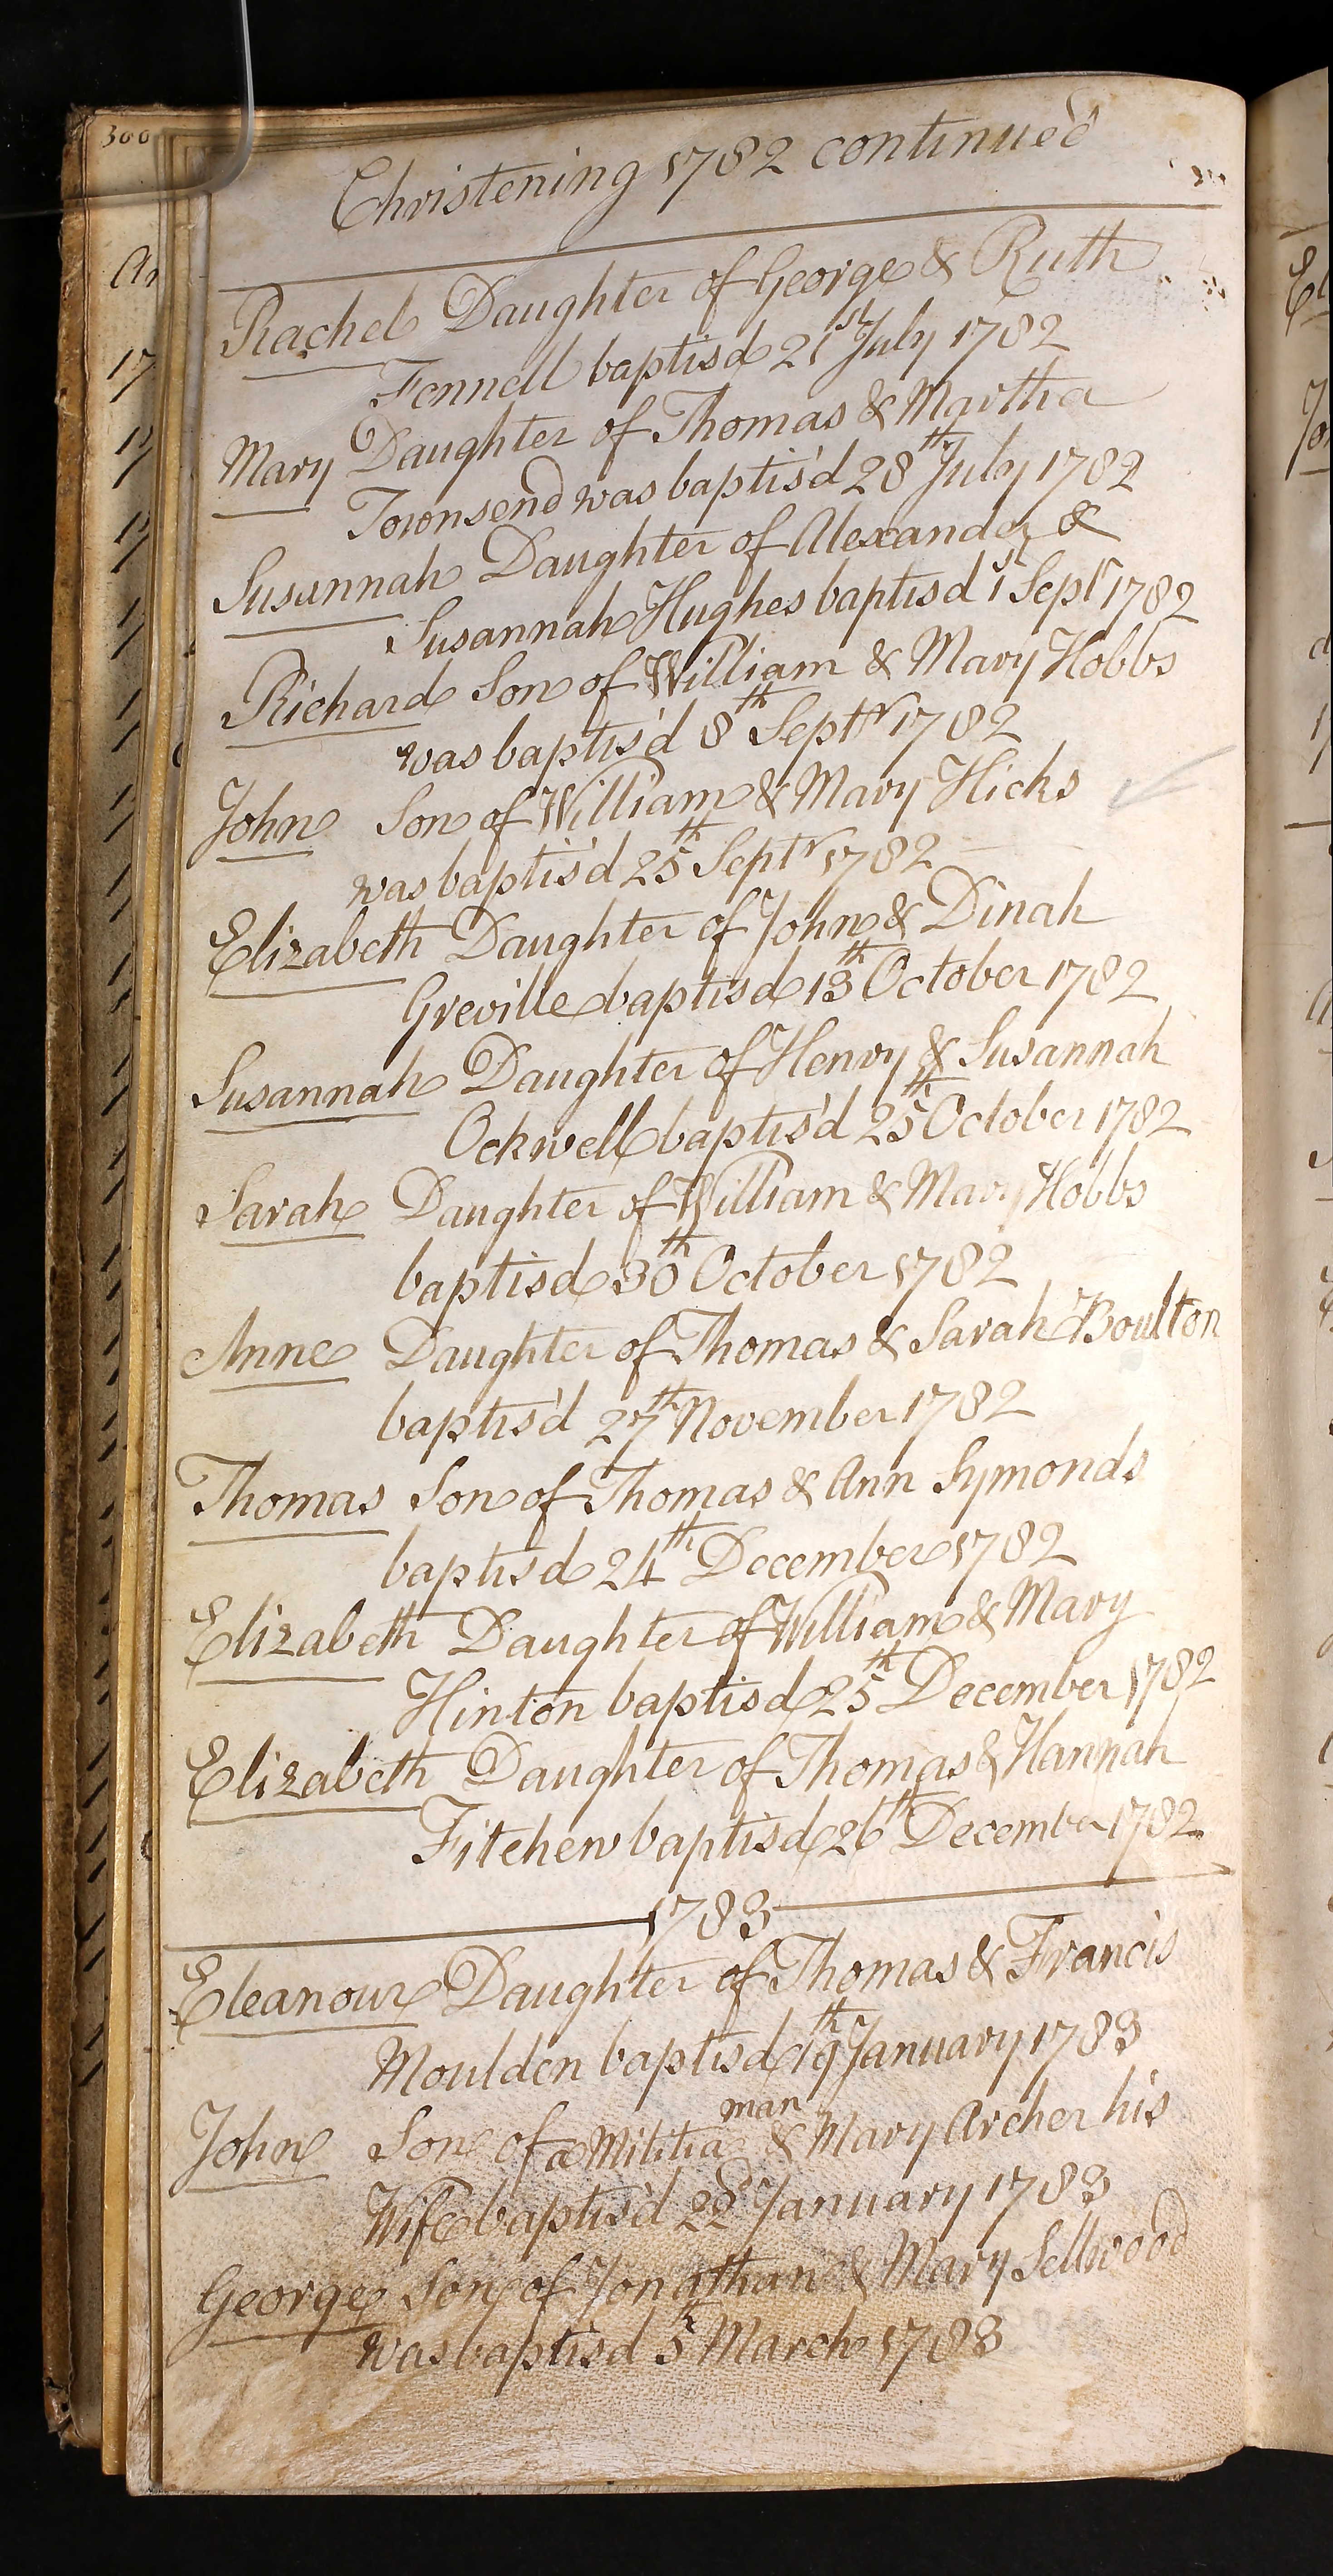 300
Christening 1782 continued
Rachel Daughter of George & Ruth
Fennell baptisd 21st July 1782
Mary Daughter of Thomas & Martha
Townsend was baptis'd 28th July 1782
Susannah Daughter of Alexander &
Susannah Hughes baptisd 1st Septr 1782
Richard Son of William & Mary Hobbs
was baptis'd 8th Septr 1782
John Son of William & Mary Hicks
was baptis'd 25th Septr 1782
Elizabeth Daughter of John & Dinah
Greville baptisd 13th October 1782
Susannah Daughter of Henry & Susannah
Ockwell baptis'd 25th October 1782
Sarah Daughter of William & Mary Hobbs
baptisd 30th October 1782
Anne Daughter of Thomas & Sarah Boulton
baptis'd 27th November 1782
Thomas Son of Thomas & Ann Symonds
baptisd 24th December 1782
Elizabeth Daughter of William & Mary
Hinton baptisd 25th December 1782
Elizabeth Daughter of Thomas & Hannah
Fitchew baptisd 26th December 1782
1783
Eleanour Daughter of Thomas & Francis
Moulden baptisd 19th January 1783
John Son of a Militia man & Mary Archer his
Wife baptis'd 22d January 1783
George Son of Jonathan & Mary Sellwood
was baptisd 5th March 1783